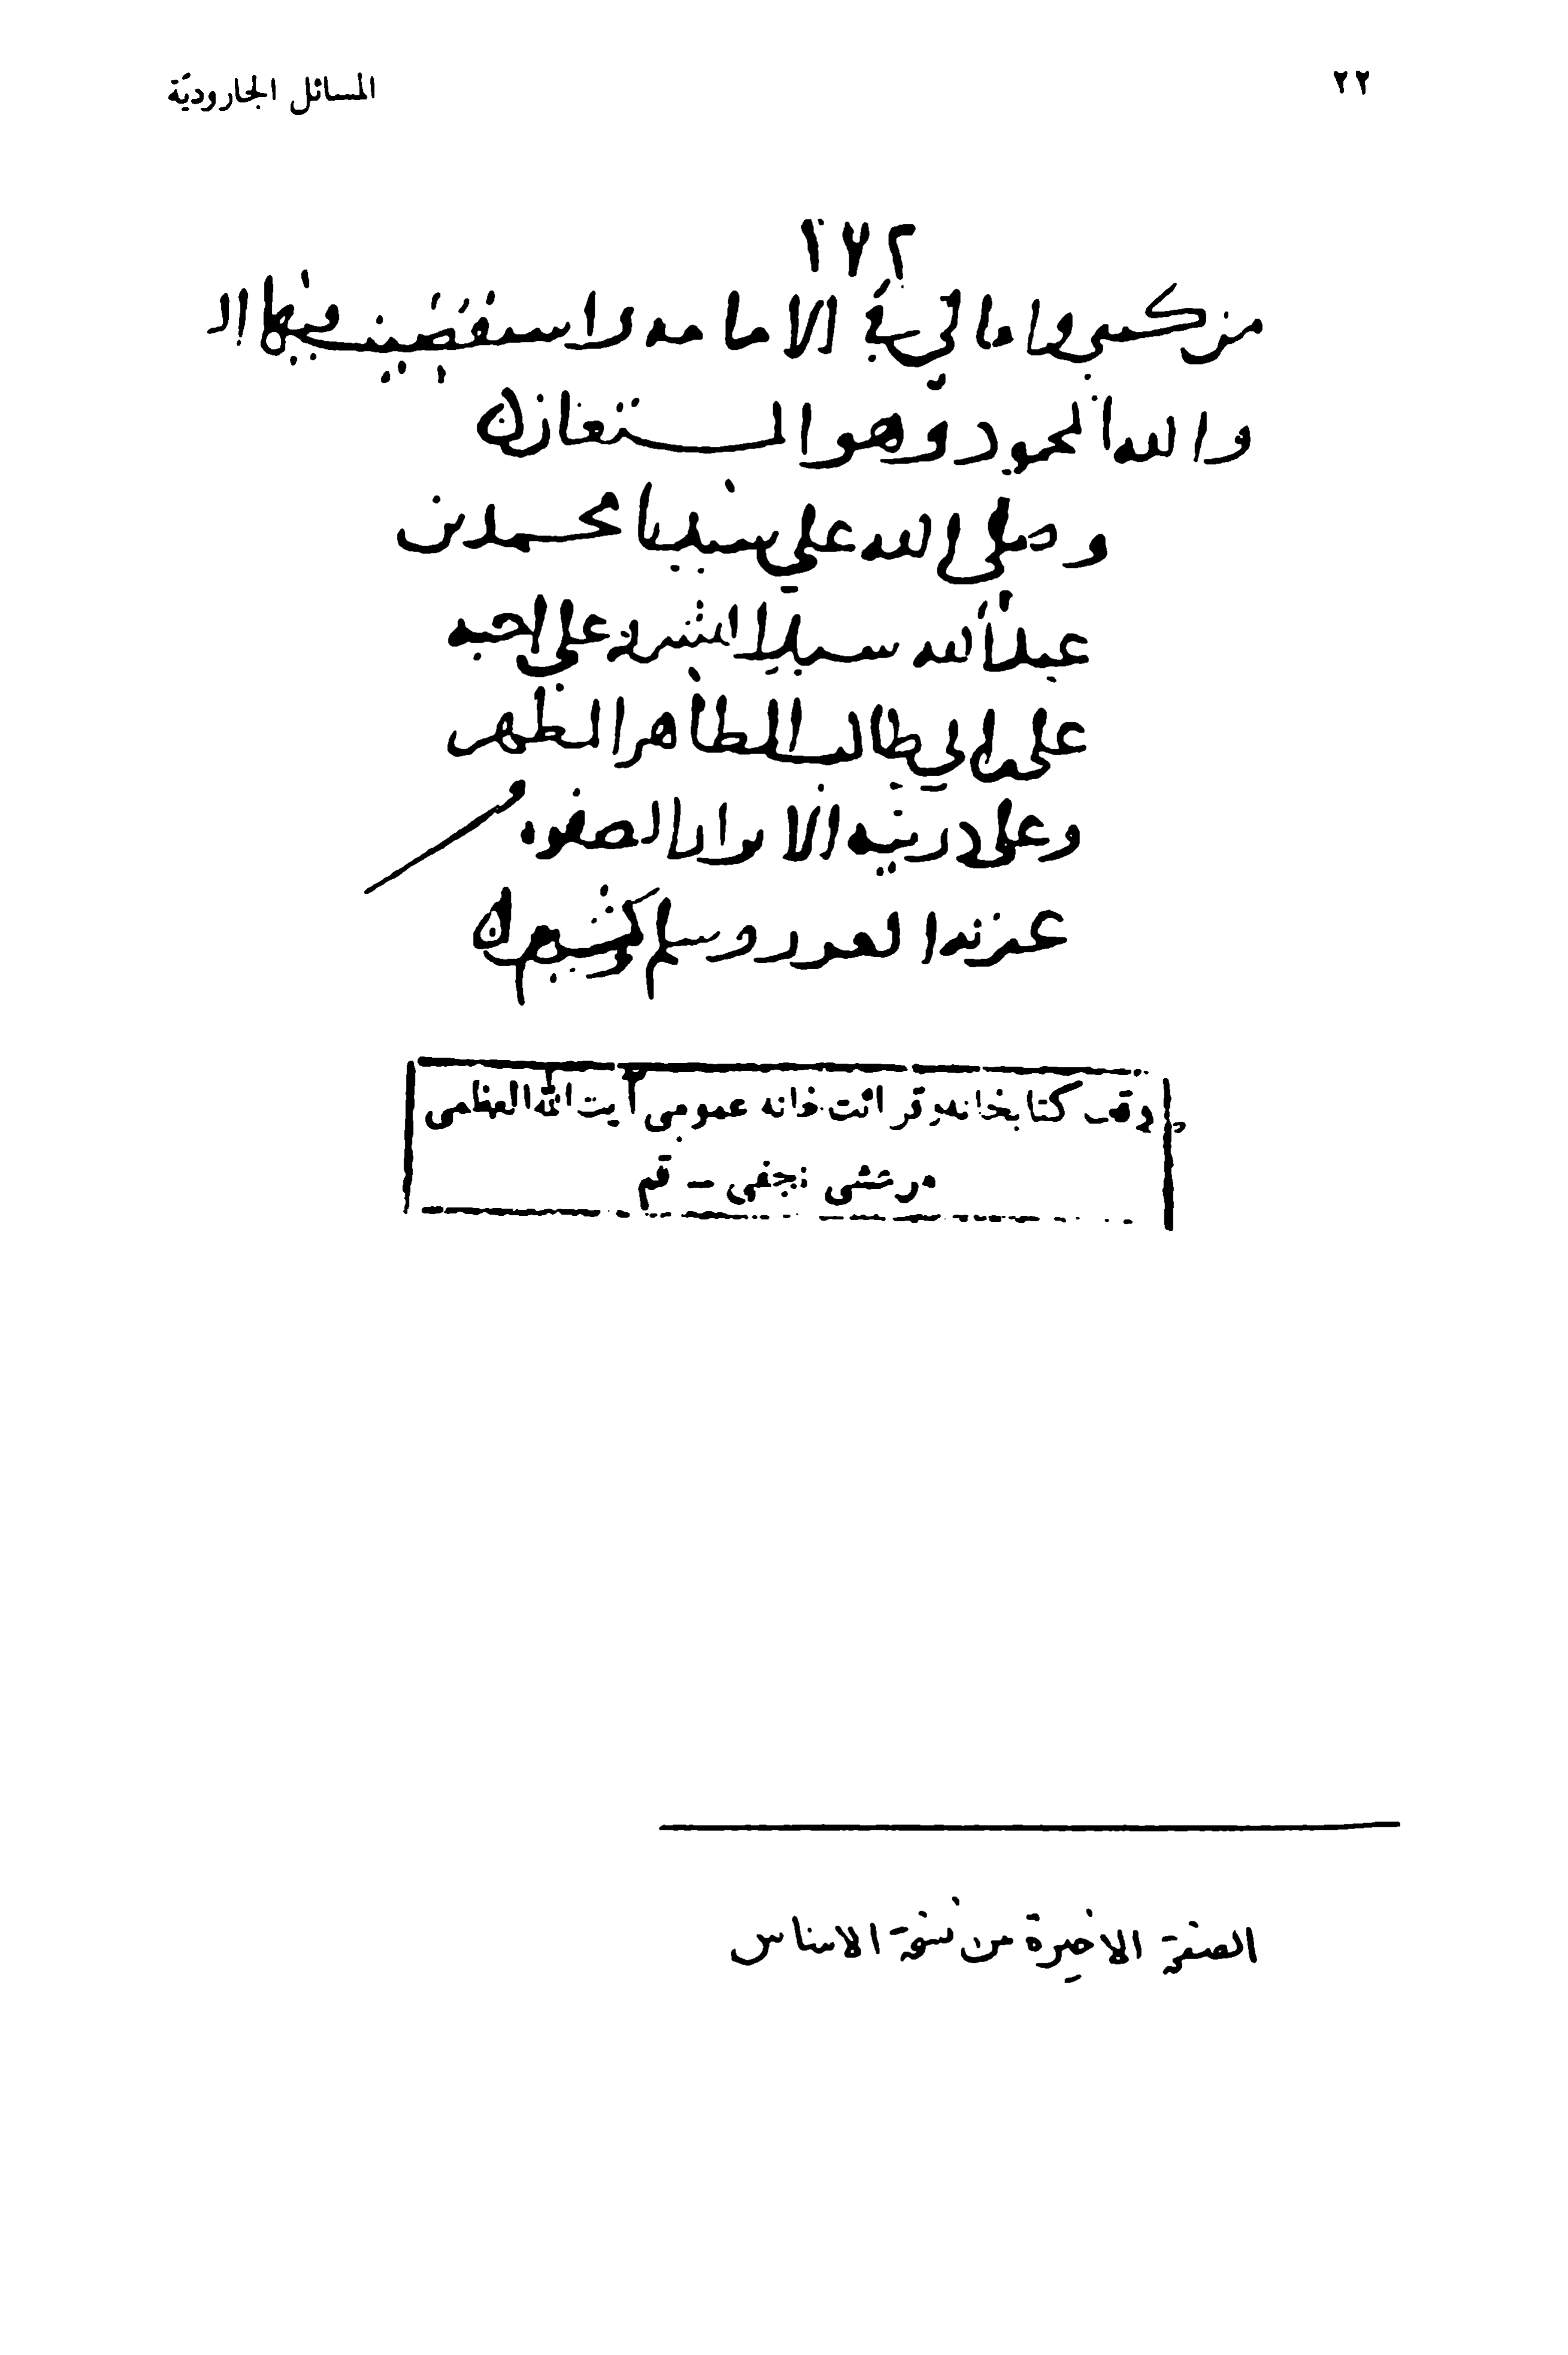 ٢٢
المسائل الجارودية
من كتبي وامالي في الامامه واستقصيت فيها
والله المحمود وهو المستعان
وصلى الله على سيدنا محمد بن
عبد الله سيد البشر وعلى اخيه
على بن ابي طالب الطاهر الطهر
وعلى ذريته الابرار الصفوه
وسلم كثيرا
وقف كتابخانه و قرائت خانه عمومي آيت الله العظمى
مرعشى نجفى - قم
الصفحة الاخيرة من نسخة الاساس